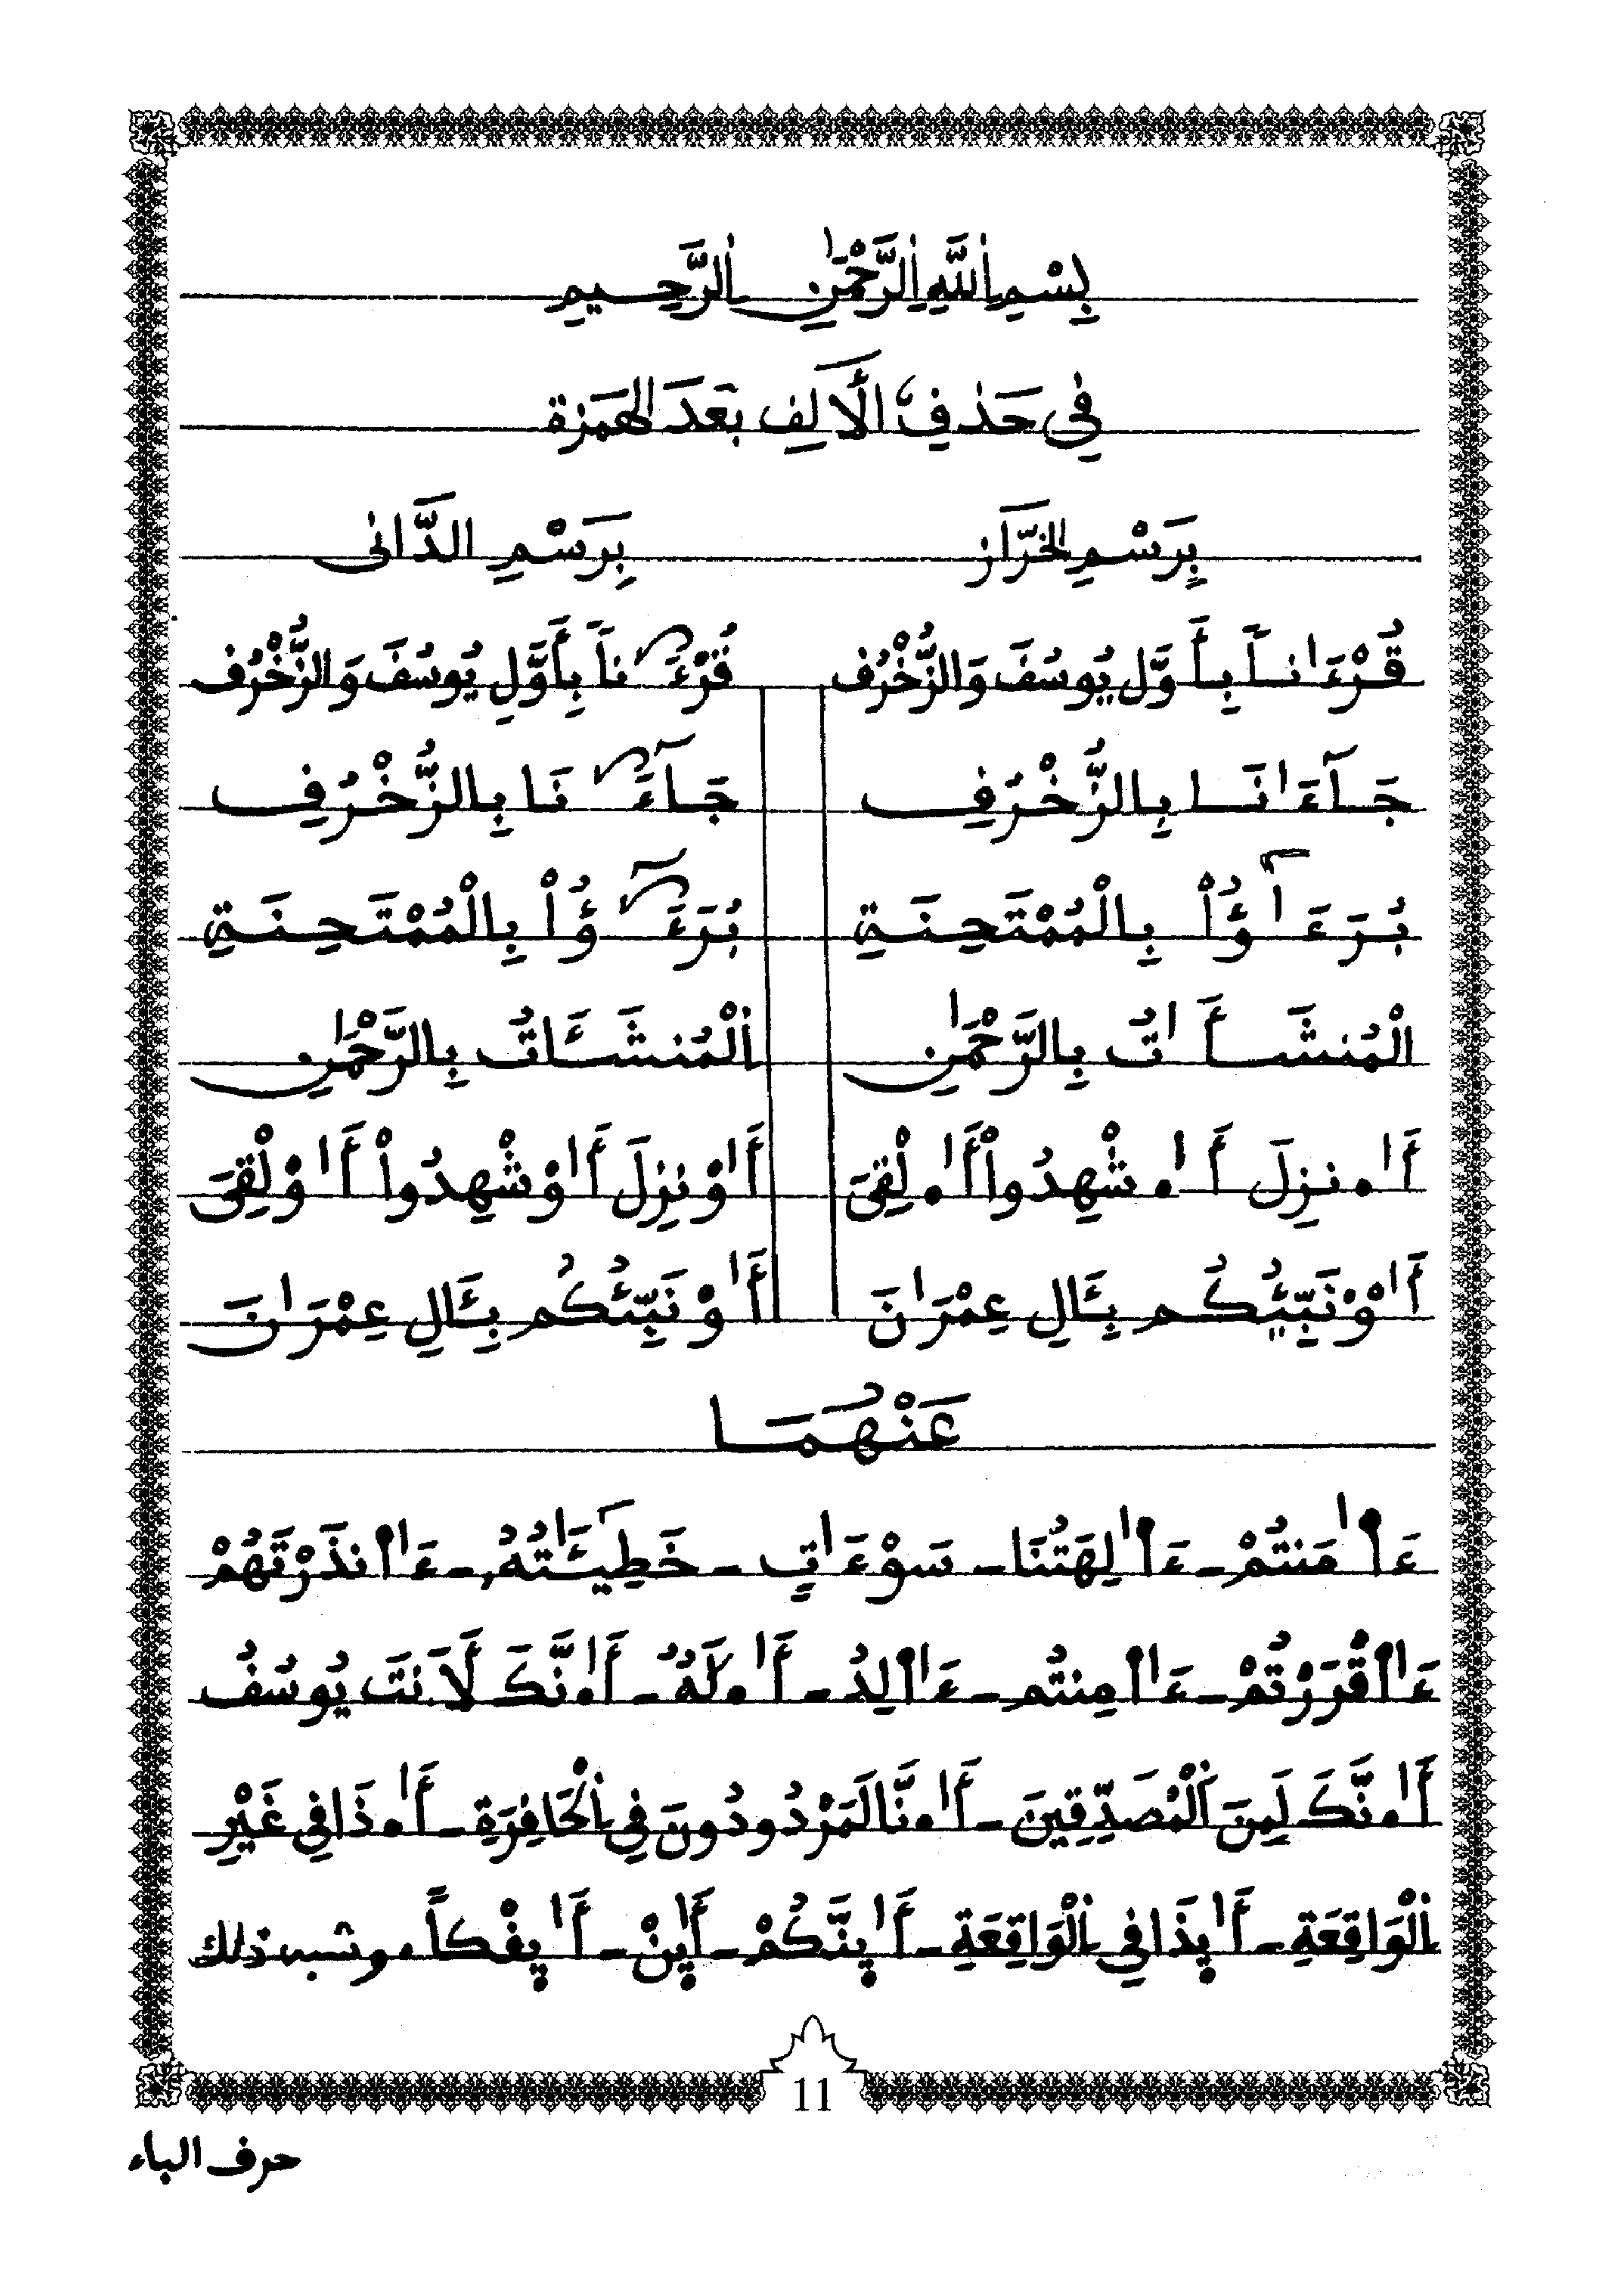 بِسْمِ اِ۬للَّهِ اِ۬لرَّحْمَٰنِ اِ۬لرَّحِيمِ
فِى حَذْفِ الْأَلِفِ بَعْدَ الْهَمْزَةِ
بِرَسْمِ الْخَرَّازِ بِرَسْمِ الدَّانِى
قُرْءَٰناً بِأَوَّلِ يُوسُفَ وَالزُّخْرُفِ قُرْءَ ناً بِأَوَّلِ يُوسُفَ وَالزُّخْرُفِ
جَآءَٰنَا بِالزُّخْرُفِ جَآءَ نَا بِالزُّخْرُفِ
بُرَءَٰٓؤُاْ بِالْمُمْتَحِنَةِ بُرَءَ ؤُاْ بِالْمُمْتَحِنَةِ
الْمُنشَأَٰتُ بِالرَّحْمَٰنِ اَ۬لْمُنشَـَٔاتُ بِالرَّحْمَٰنِ
أَٰ.نزِلَ أَٰ.شْهِدُواْ أَٰ.لْقِىَ أَٰوْنزِلَ أَٰوْشْهِدُواْ أَٰوْلْقِىَ
أَٰوْنَبِّيُكُم بِـَٔالِ عِمْرَٰنَ أَٰوْنَبِّئُكُم بِـَٔالِ عِمْرَٰنَ
عَنْهُمَا
ءَاٰمَنتُمْ - ءَاٰلِهَتُنَا - سَوْءَٰتِ - خَطِيـَٔـٰتُهُۥ - ءَاٰنذَرْتَهُمْ
ءَاٰقْرَرْتُمْ - ءَاٰمِنتُم - ءَاٰلِدُ - أَٰ.لَهٌ - أَٰ.نَّكَ لَأَنتَ يُوسُفُ
أَٰ.نَّكَ لَمِنَ اَ۬لْمُصَدِّقِينَ - أَٰ.نَّا لَمَرْدُودُونَ فِي اِ۬لْحَافِرَةِ - أَٰ.ذَا فِي غَيْرِ
اِ۬لْوَاقِعَةِ - أَٰيِذَا فِي اِ۬لْوَاقِعَةِ - أَٰيِنَّكُمْ - أَٰيِنْ - أَٰيِفْكاً. وشبه ذلك
11
حرف الباء